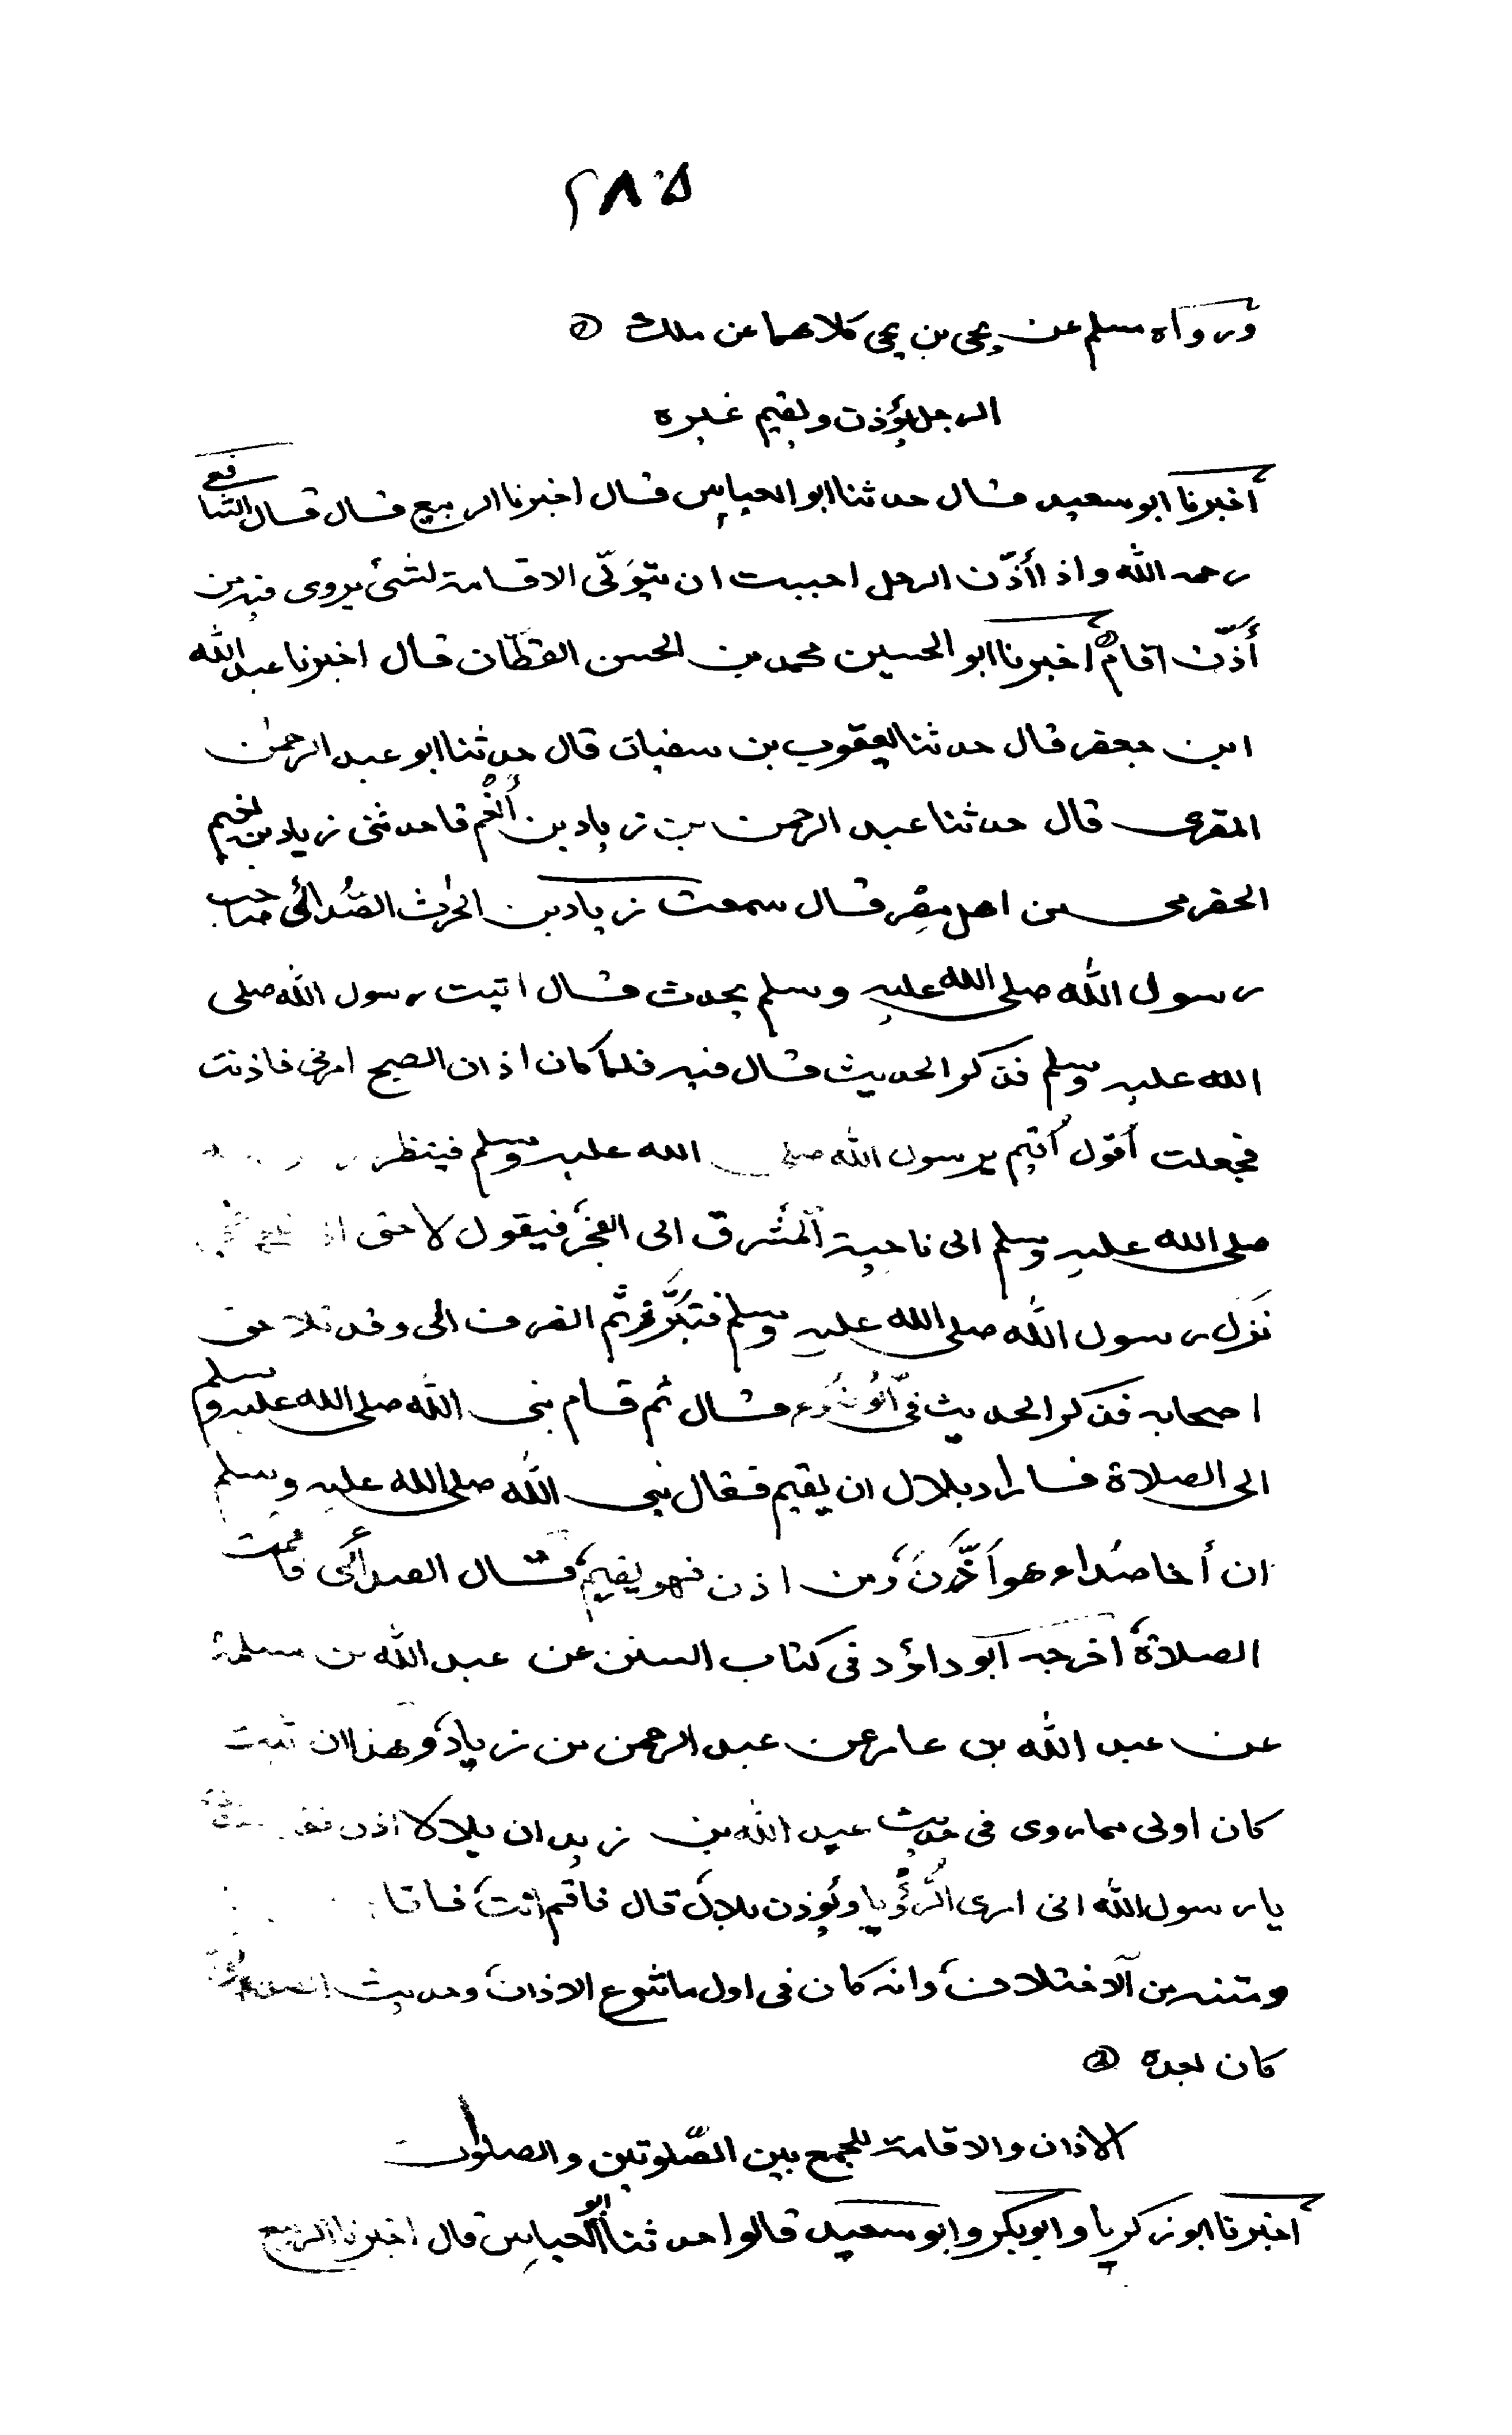 ٢٨٥
ورواه مسلم عن يحيى بن يحيى كلاهما عن ملك
الرجل يؤذن ويقيم غيره
أخبرنا ابو سعيد قال حدثنا ابو العباس قال اخبرنا الربيع قال قال الشافعي
رحمه الله واذا أذّن الرجل احببت ان يتوَلّى الاقامة لشئ يروى فيه من
أذّن اقام اخبرنا ابو الحسين محمد بن الحسن القطّان قال اخبرنا عبد الله
ابن جعفر قال حدثنا يعقوب بن سفيان قال حدثنا ابو عبد الرحمن
المقرى قال حدثنا عبد الرحمن بن زياد بن أنْعُم قا حدثنى زياد بن نعيم
الحضرمى من اهل مِصْر قال سمعت زياد بن الحٰرث الصُدائى صاحب
رسول الله صلى الله عليه وسلم يحدث قال اتيت رسول الله صلى
الله عليه وسلم فذكر الحديث قال فيه فلما كان اذان الصبح امرنى فاذنت
فجعلت أقول أقيم يرسول الله صلى الله عليه وسلم فينظر
صلى الله عليه وسلم الى ناحية المشرق الى الفجر فيقول لا حتى اذا
نَزَل رسول الله صلى الله عليه وسلم فتبرَّز ثم انصرف الى وقد تلاحق
اصحابه فذكر الحديث فى الوُضُوء قال ثم قام نبى الله صلى الله عليه وسلم
الى الصلاة فاراد بلال ان يقيم فقال نبى الله صلى الله عليه وسلم
ان أخا صُداء هو اَذَّنَ ومن اذن فهو يقيم قال الصدائى فاقمت
الصلاة اخرجه ابو داؤد فى كتاب السنن عن عبد الله بن مسلمة
عن عبد الله بن عامر عن عبد الرحمن بن زياد وهذا ان ثبت
كان اولى مما روى فى حديث عبد الله بن زيد ان بلالا اذن
يا رسول الله انى ارى الرُّؤيا ويُؤذن بلال قال فاقم انت
ومتنه من الاختلاف وانه كان فى اول ما شرع الاذان وحديث
كان بعده
الاذان والاقامة للجمع بين الصّلوتين والصلوات
أخبرنا ابو زكريا وابو بكر وابو سعيد قالوا حدثنا ابو العباس قال اخبرنا الربيع